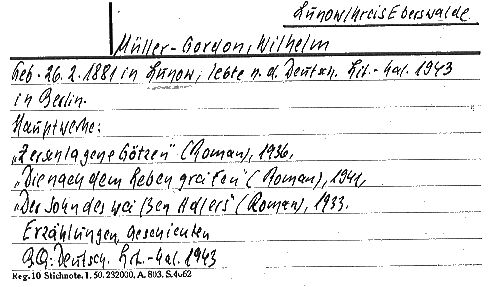 Lunow/Kreis Eberswalde.
Müller-Gordon, Wilhelm
Geb. 26.2.1881 in Lunow; lebte n. d. Deutsch. Lit.-Kal. 1943
in Berlin.
Hauptwerke:
„Zerschlagene Götzen" (Roman), 1936,
„Die nach dem Leben greifen" (Roman), 1941,
„Der Sohn des weißen Adlers" (Roman), 1933.
Erzählungen, Geschichten
BQ: Deutsch. Lit.-Kal. 1943
Reg. 10 Stichnote. 1. 50. 232000. A. 803. S. 4062